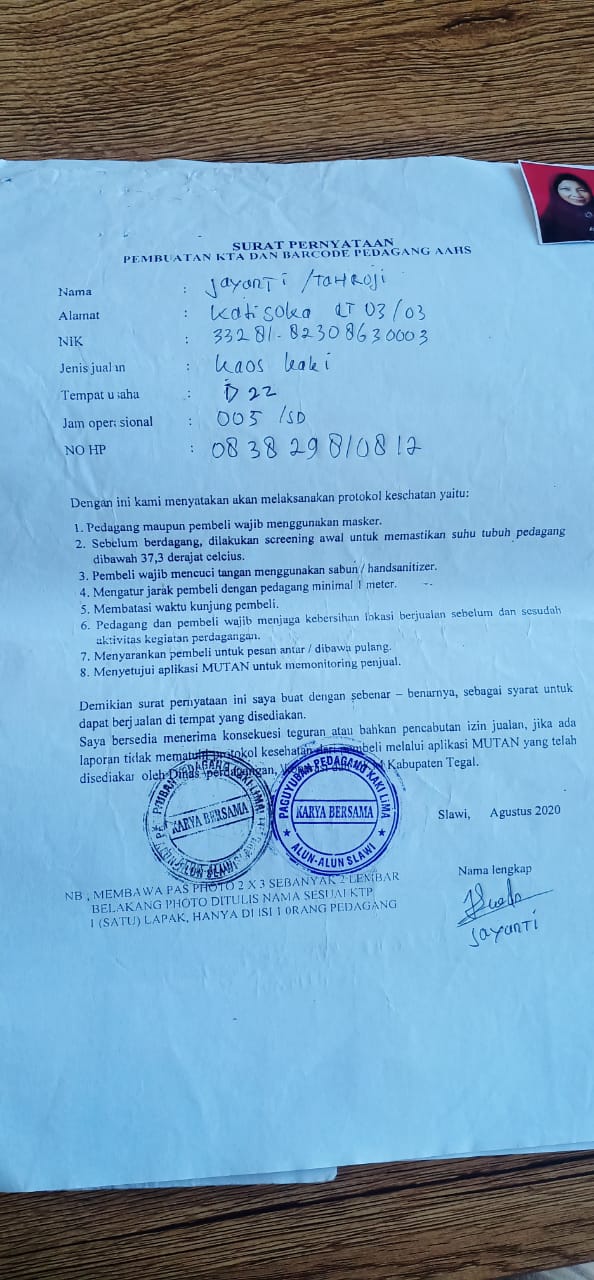 SURAT PERNYATAAN
PEMBUATAN KTA DAN BARCODE PEDAGANG AAHS
Nama : Jayanti / Tahroji
Alamat : Kalisoka RT 03/03
NIK : 33281-82308630003
Jenis jualan : kaos kaki
Tempat usaha : D 22
Jam operasional : 005 /SD
NO HP : 0838 29810812
Dengan ini kami menyatakan akan melaksanakan protokol kesehatan yaitu:
1. Pedagang maupun pembeli wajib menggunakan masker.
2. Sebelum berdagang, dilakukan screening awal untuk memastikan suhu tubuh pedagang
dibawah 37,3 derajat celcius.
3. Pembeli wajib mencuci tangan menggunakan sabun / handsanitizer.
4. Mengatur jarak pembeli dengan pedagang minimal 1 meter.
5. Membatasi waktu kunjung pembeli.
6. Pedagang dan pembeli wajib menjaga kebersihan lokasi berjualan sebelum dan sesudah
aktivitas kegiatan perdagangan.
7. Menyarankan pembeli untuk pesan antar / dibawa pulang.
8. Menyetujui aplikasi MUTAN untuk memonitoring penjual.
Demikian surat pernyataan ini saya buat dengan sebenar – benarnya, sebagai syarat untuk
dapat berjualan di tempat yang disediakan.
Saya bersedia menerima konsekuesi teguran atau bahkan pencabutan izin jualan, jika ada
laporan tidak mematuhi protokol kesehatan dari pembeli melalui aplikasi MUTAN yang telah
disediakan oleh Dinas perdagangan, Kabupaten Tegal.
PAGUYUBAN PEDAGANG KAKI LIMA
KARYA BERSAMA
ALUN-ALUN SLAWI
PAGUYUBAN PEDAGANG KAKI LIMA
KARYA BERSAMA
ALUN-ALUN SLAWI
Slawi, Agustus 2020
Nama lengkap
Jayanti
NB ; MEMBAWA PAS PHOTO 2 X 3 SEBANYAK 2 LEMBAR
BELAKANG PHOTO DITULIS NAMA SESUAI KTP
1 (SATU) LAPAK, HANYA DI ISI 1 0RANG PEDAGANG